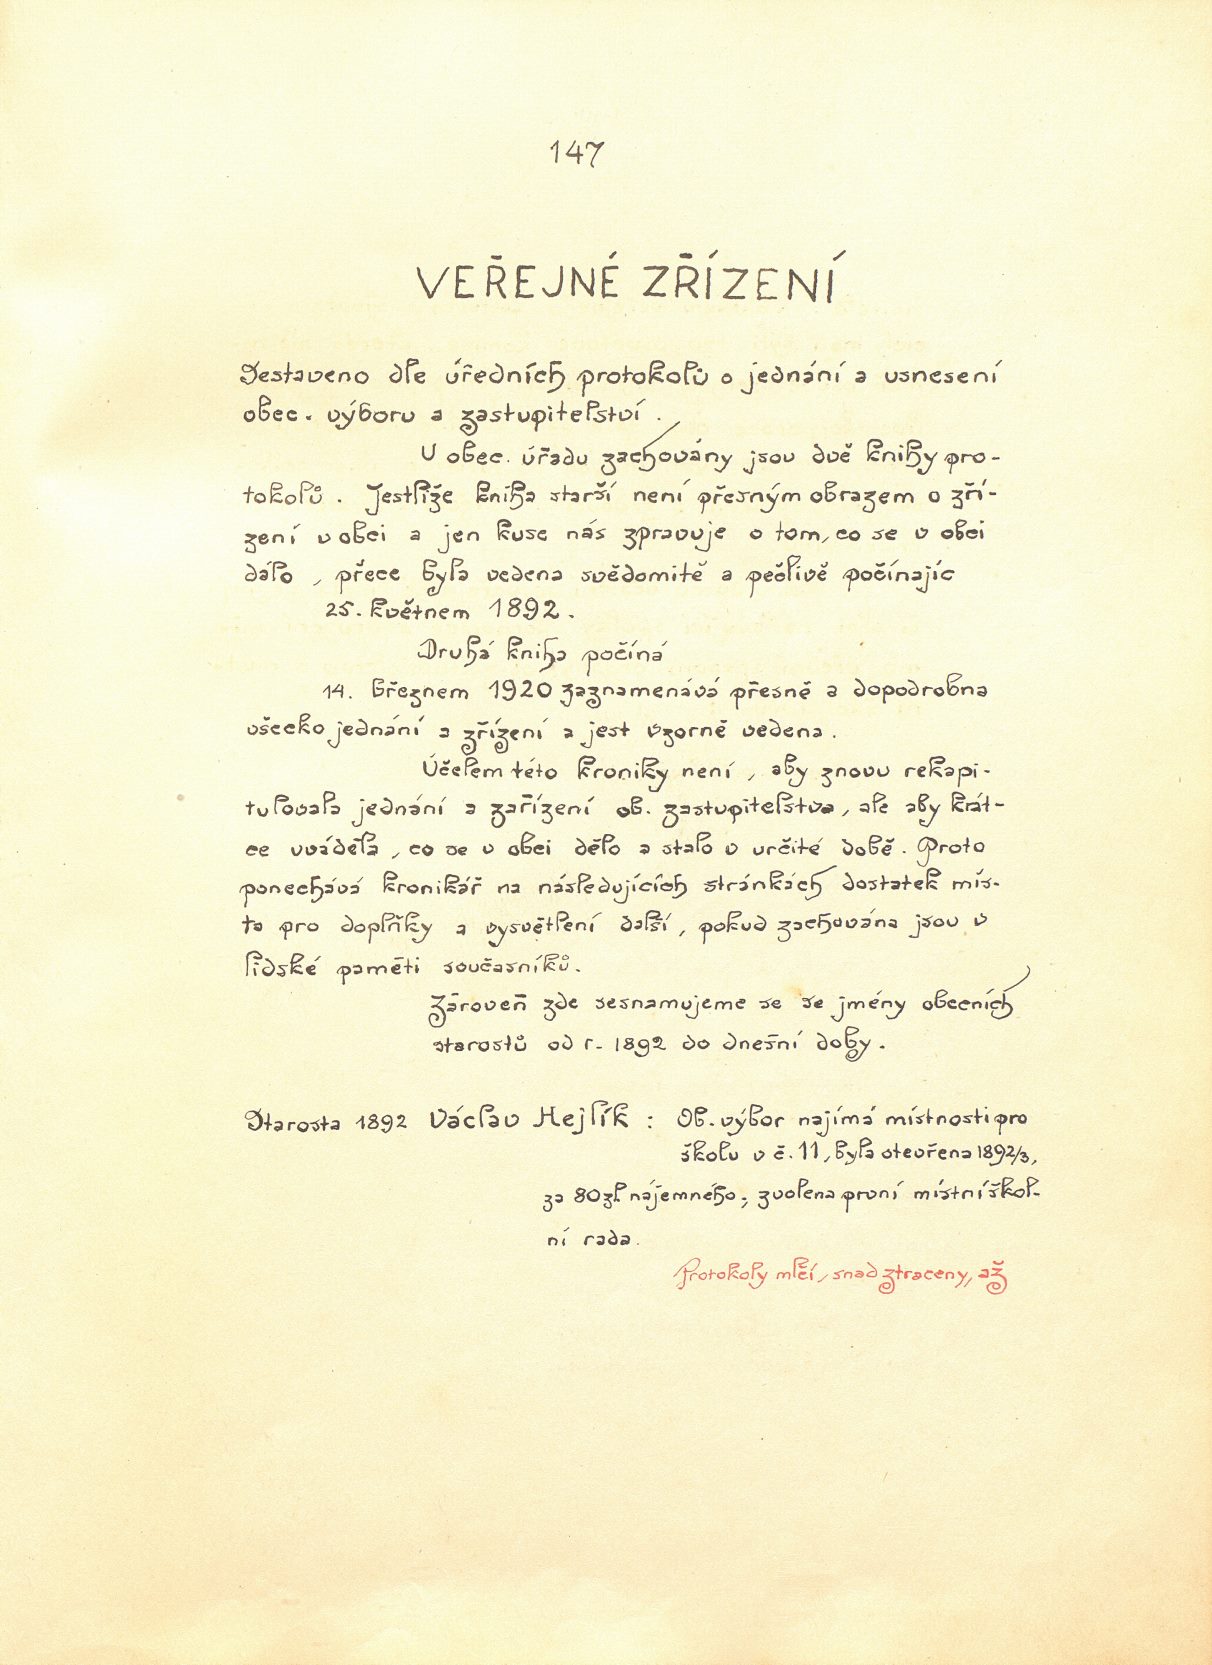 147
VEŘEJNÉ ZŘÍZENÍ
Sestaveno dle úředních protokolů o jednání a usnesení
obec. výboru a zastupitelství.
U obec. úřadu zachovány jsou dvě knihy pro-
tokolů. Jestliže kniha starší není přesným obrazem o zří-
zení v obci a jen kuse nás zpravuje o tom, co se v obci
dálo, přece byla vedena svědomitě a pečlivě počínajíc
25. květnem 1892.
Druhá kniha počíná
14. březnem 1920 zaznamenává přesně a dopodrobna
všecko jednání a zřízení a jest vzorně vedena.
Účelem této kroniky není, aby znovu rekapi-
tulovala jednání a zařízení ob. zastupitelstva, ale aby krát-
ce uváděla, co se v obci dělo a stalo v určité době. Proto
ponechává kronikář na následujících stránkách dostatek mís-
ta pro doplňky a vysvětlení další, pokud zachována jsou v
lidské paměti současníků.
Zároveň zde sesnamujeme se se jmény obecních
starostů od r. 1892 do dnešní doby.
Starosta 1892 Václav Hejlík: Ob. výbor najímá místnosti pro
školu v č. 11, byla otevřena 1892/3,
za 80 zl. nájemného; zvolena první místní škol-
ní rada.
Protokoly mlčí, snad ztraceny, až